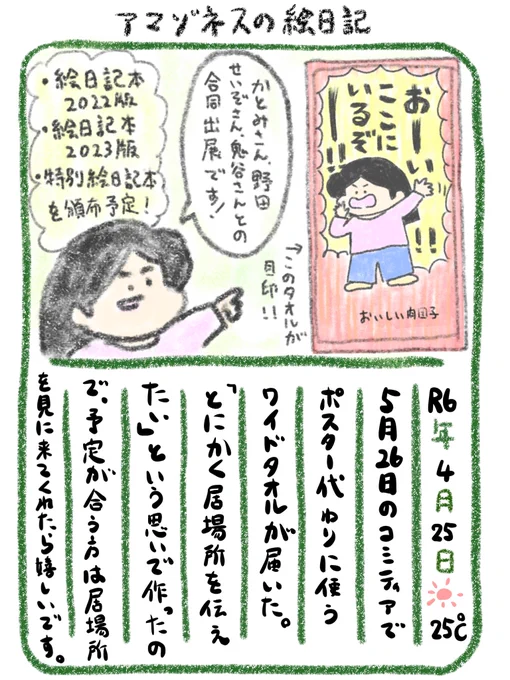 アマゾネスの絵日記
おーい!!
ここに
いるぞ
ー!!
おいしい肉団子
→このタオルが
目印!!
かとみさん、野田
せいぞさん、鬼谷さんとの
合同出展です!
・絵日記本
2022版
・絵日記本
2023版
・特別絵日記本
を頒布予定!
R6年4月25日 25℃
5月26日のコミティアで
ポスター代わりに使う
ワイドタオルが届いた。
「とにかく居場所を伝え
たい」という思いで作ったの
で、予定が合う方は居場所
を見に来てくれたら嬉しいです。